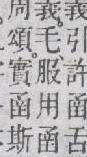 義引許函古
義毛服用函
周頌實函斯